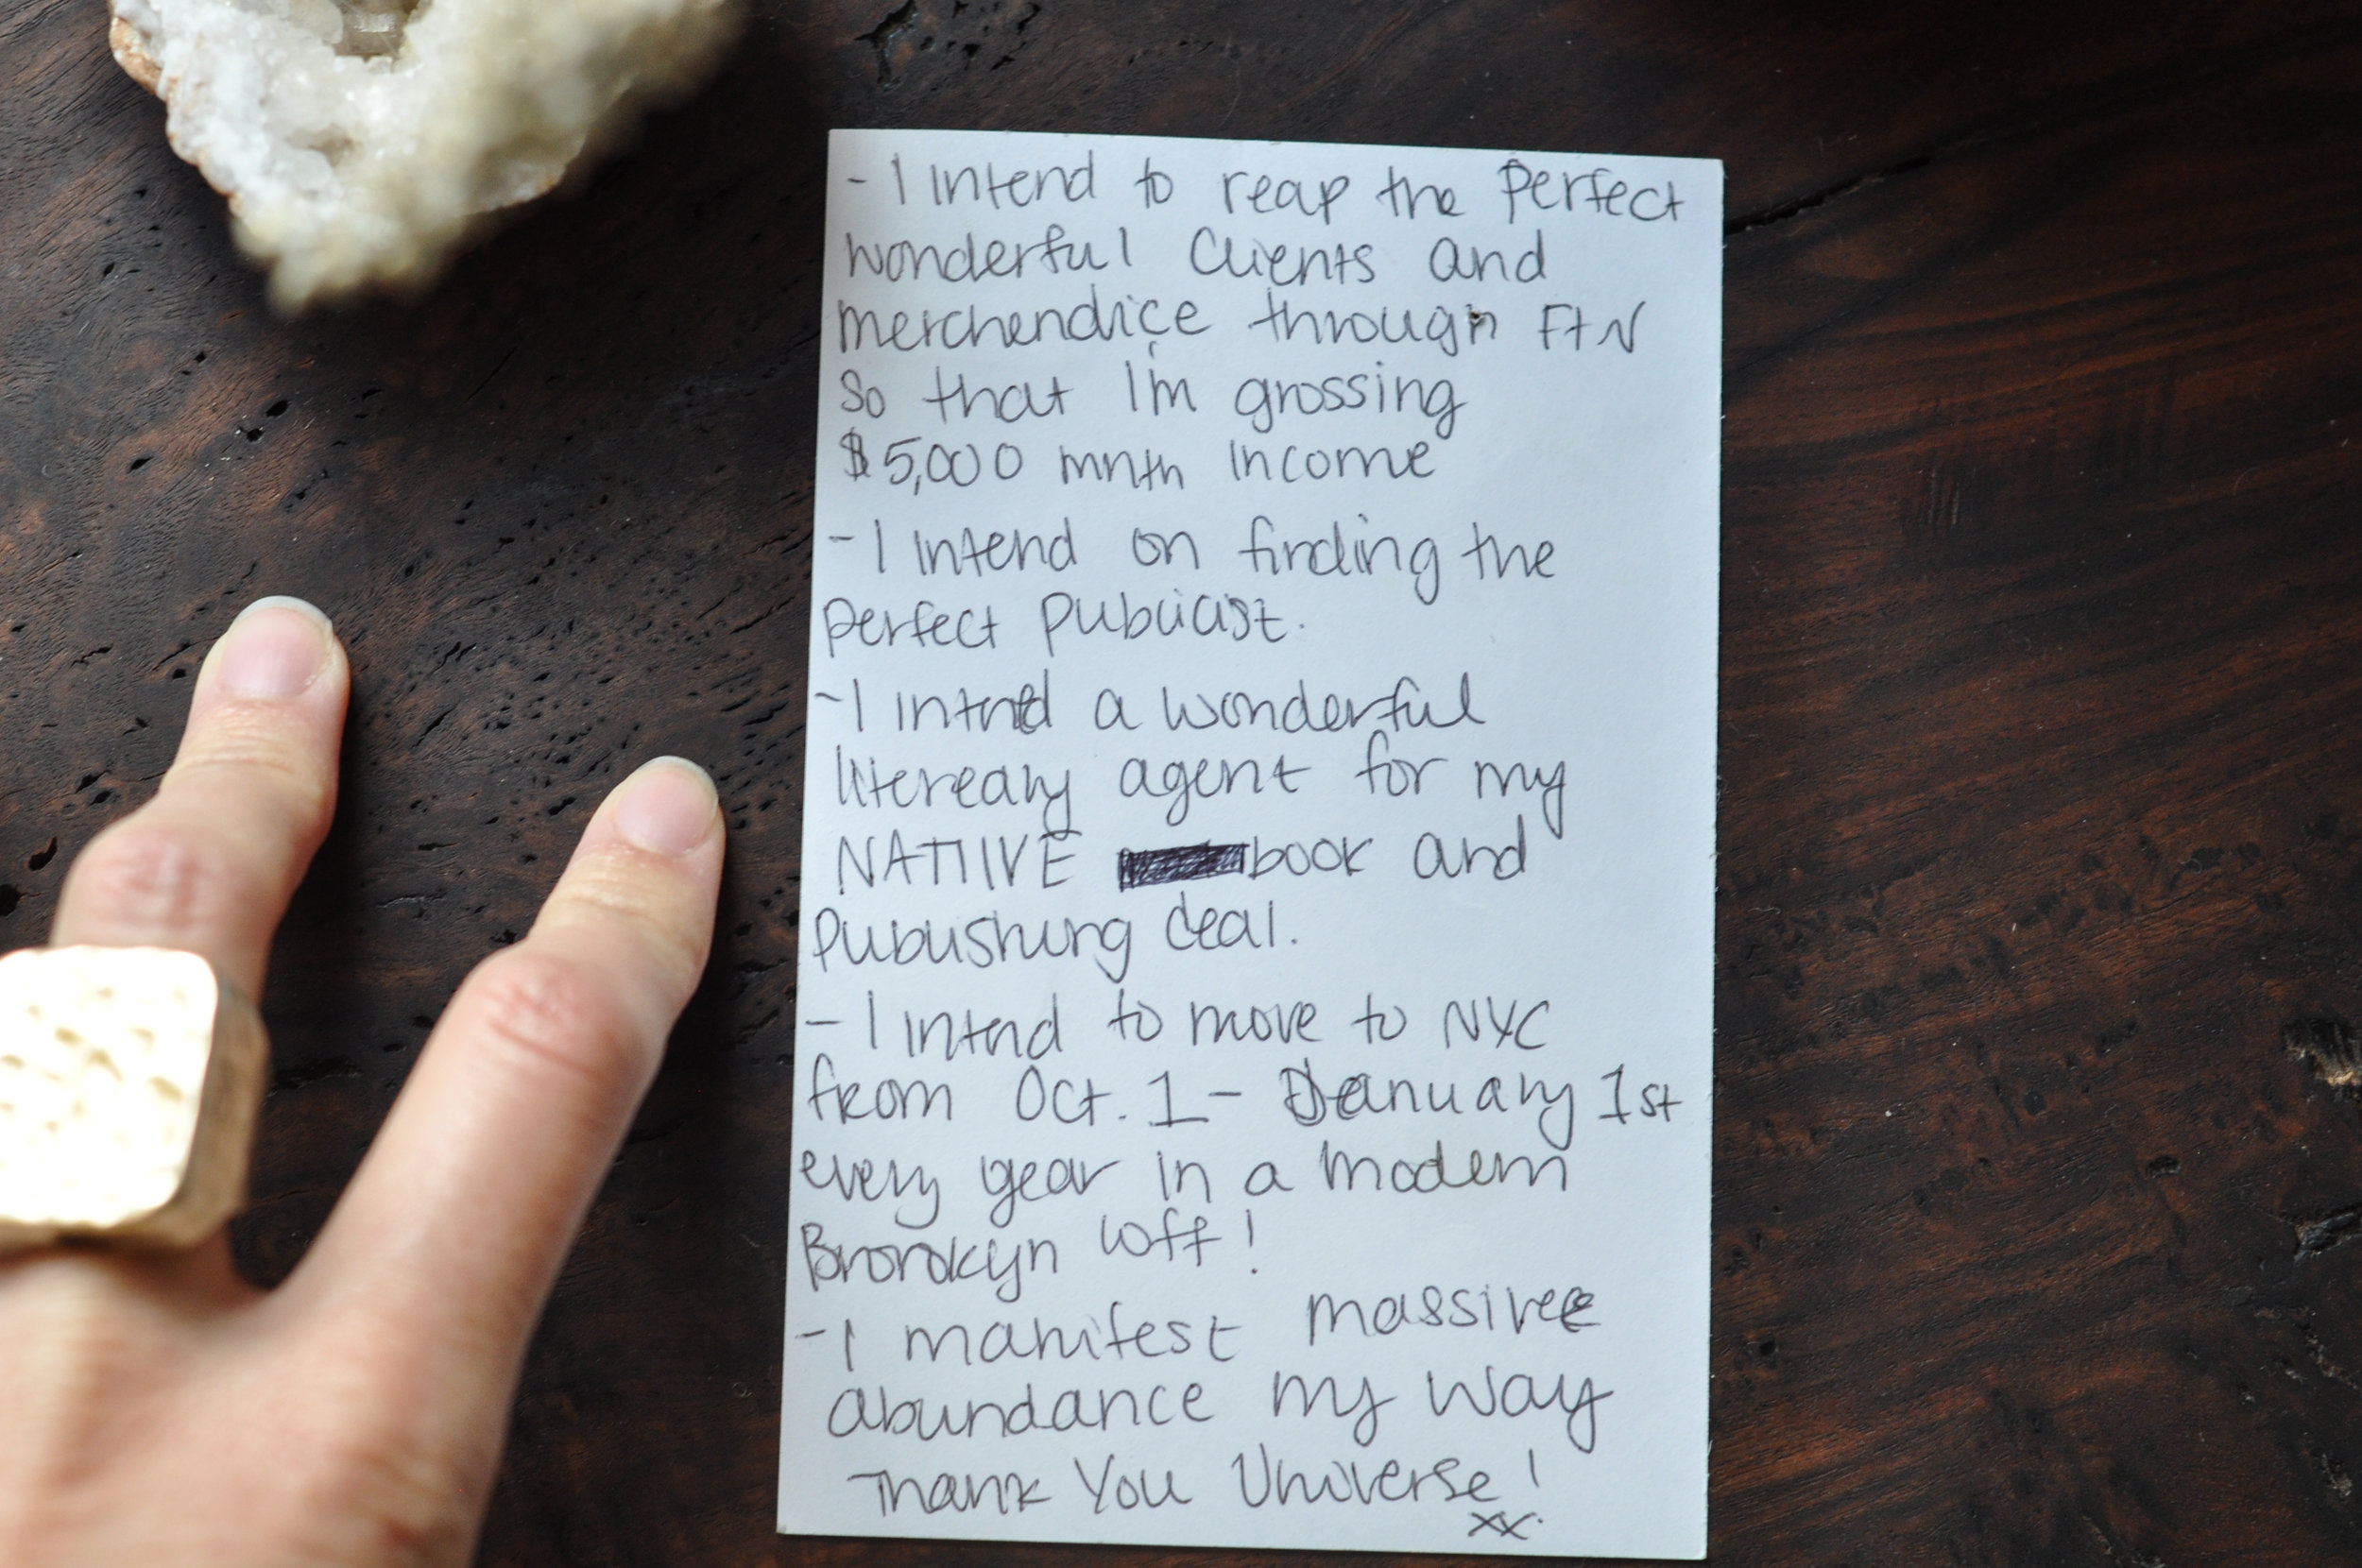 - I intend to reap the perfect
wonderful clients and
merchendice through FtN
So that I'm grossing
$5,000 mnth income
- I intend on finding the
perfect publicist.
- I intend a wonderful
litereary agent for my
NATIIVE book and
publishing deal.
- I intend to move to NYC
from Oct. 1 - January 1st
every year in a modern
Brorokyn loft!
- I manifest massivee
abundance my way
Thank You Universe!
xx.